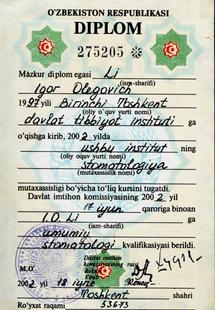 O'ZBEKISTON RESPUBLIKASI
DIPLOM
275205
Mazkur diplom egasi Li
(ism-sharifi)
Igor Olegovich
1997 yil Birinchi Toshkent
(oliy oquv yurti nomi)
davlat tibbiyot instituti ga
o'qishga kirib, 2002 yilda
ushbu institut ning
(oliy oquv yurti nomi)
stomatologiya
(mutaxassislik nomi)
mutaxassisligi bo'yicha to'liq kursini tugatdi.
Davlat imtihon komissiyasining 2002 yil
17 iyun qaroriga binoan
I.O. Li
(ism-sharifi)
umumiy
stomatologi kvalifikasiyasi berildi.
Davlat imtihon
komissiyasining raisi
M.O'.
2002 18 iyun
Toshkent shahri
Ro'yxat raqami 53673